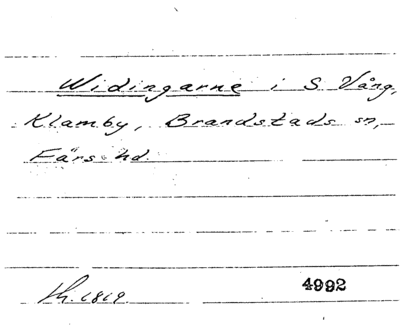 Widingarne i S. Vång,
Klamby, Brandstads sn,
Färs hd.
Lh. 1819. 4992